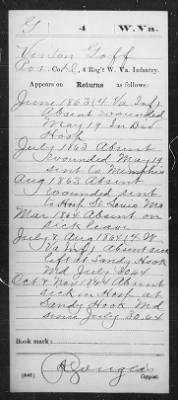 G | 4 | W. Va.
Vinton Goff
Co. D, 4 Reg't W. Va. Infantry.
Appears on Returns as follows:
June 1863 (4 Va Inf)
Absent wounded
May 19 In Div
Hosp
July 1863 Absent
wounded May 19
sent to Memphis
Aug 1863 Absent
wounded sent
to Hosp St Louis Mo
Mar 1864 Absent on
sick leave
July & Aug 1864 (4 W
Va Inf) Absent sick
left at Sandy Hook
Md July 30.64
Oct & Nov 1864 Absent
sick in Hosp at
Sandy Hook Md
since July 30.64
Book mark:
(546)
Copyist.